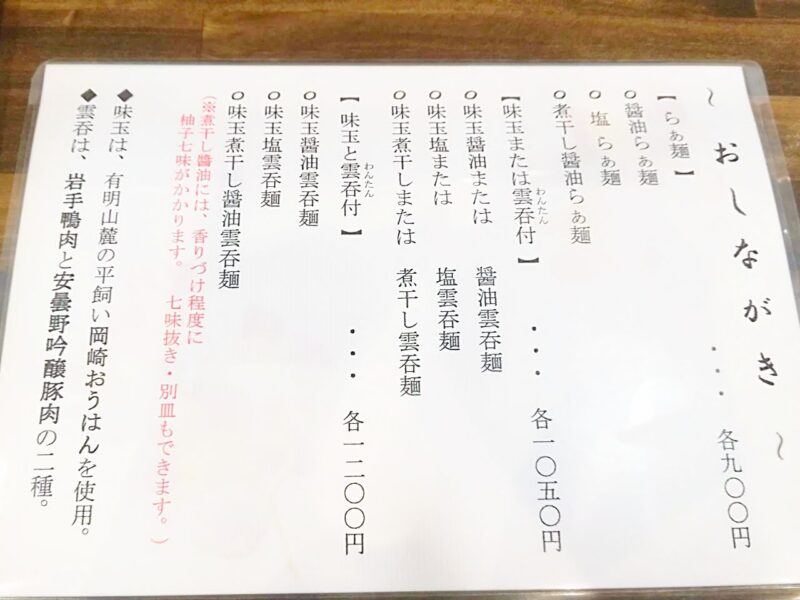 ～おしながき～
【らぁ麺】・・・各九〇〇円
○醤油らぁ麺
○塩らぁ麺
○煮干し醤油らぁ麺
【味玉または雲呑付】・・・各一〇五〇円
わんたん
○味玉醤油または 醤油雲呑麺
○味玉塩または 塩雲呑麺
○味玉煮干しまたは 煮干し雲呑麺
【味玉と雲呑付】・・・各一二〇〇円
わんたん
○味玉醤油雲呑麺
○味玉塩雲呑麺
○味玉煮干し醤油雲呑麺
（※煮干し醤油には、香りづけ程度に
柚子七味がかかります。 七味抜き・別皿もできます。）
◆味玉は、有明山麓の平飼い岡崎おうはんを使用。
◆雲呑は、岩手鴨肉と安曇野吟醸豚肉の二種。